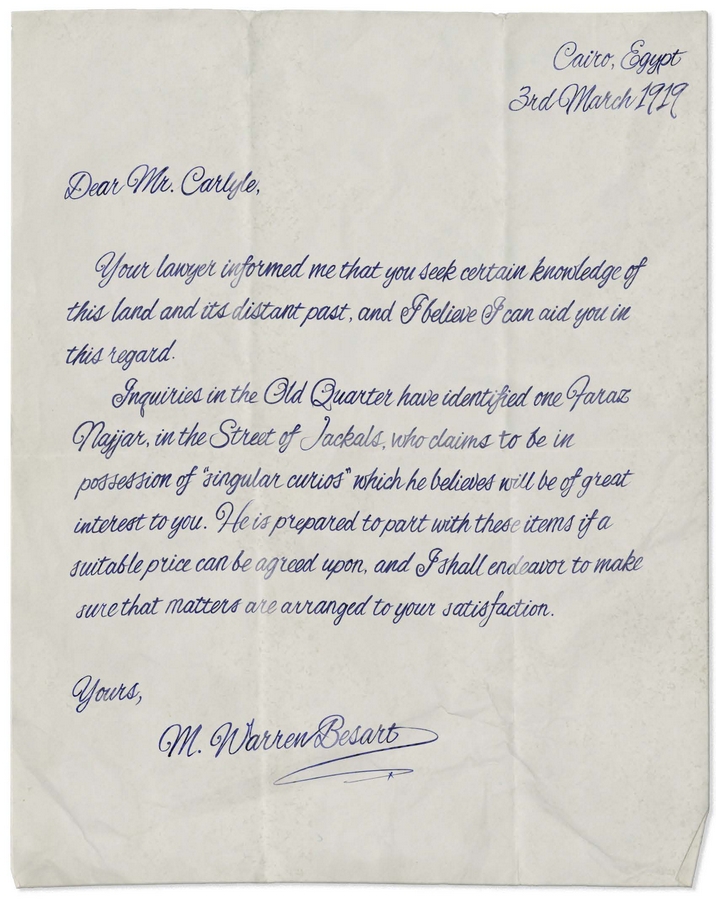 Cairo, Egypt
3rd March 1919
Dear Mr. Carlyle,
Your lawyer informed me that you seek certain knowledge of
this land and its distant past, and I believe I can aid you in
this regard.
Inquiries in the Old Quarter have identified one Faraz
Najjar, in the Street of Jackals, who claims to be in
possession of "singular curios" which he believes will be of great
interest to you. He is prepared to part with these items if a
suitable price can be agreed upon, and I shall endeavor to make
sure that matters are arranged to your satisfaction.
Yours,
M. Warren Besart